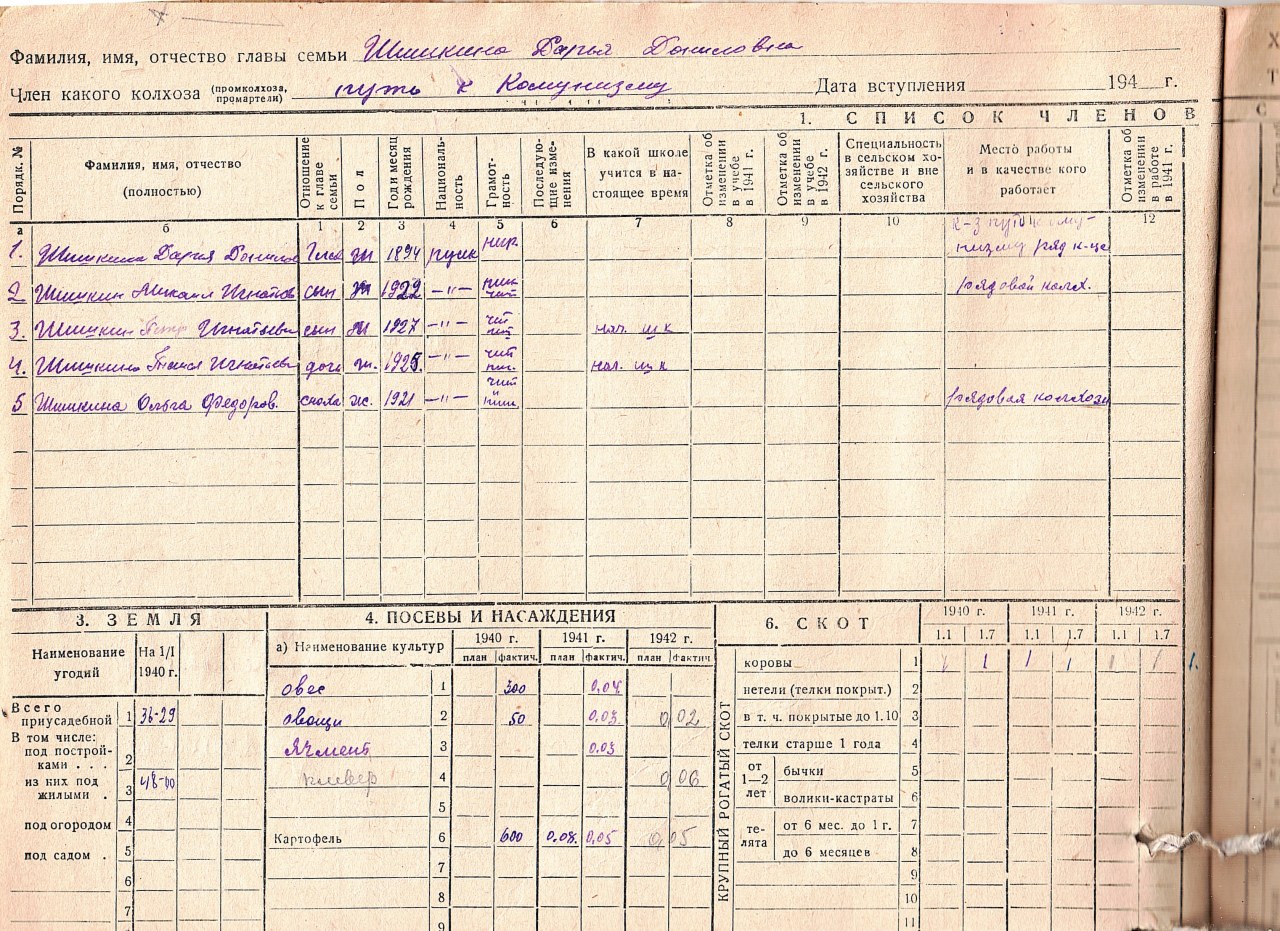 Фамилия, имя, отчество главы семьи Шишкина Дарья Даниловна
Член какого колхоза (промколхоза, промартели) путь к Комунизму Дата вступления 194 г.
1. СПИСОК ЧЛЕНОВ
Порядк. № Фамилия, имя, отчество (полностью) Отношение к главе семьи Пол Год и месяц рождения Националь-ность Грамот-ность Последую-щие изме-нения В какой школе учится в на-стоящее время Отметка об изменении в учебе в 1941 г. Отметка об изменении в учебе в 1942 г. Специальность в сельском хо-зяйстве и вне сельского хозяйства Место работы и в качестве кого работает Отметка об изменении в работе в 1941 г.
а б 1 2 3 4 5 6 7 8 9 10 12
1. Шишкина Дарья Данилов ж 1894 русск к-з путь кому-низму ряд к-це
2 Шишкин Михаил Игнатов сын 1922 —"— рядовой колх.
3. Шишкин Петр Игнатьеви сын 1927 —"— чит нач. шк
4. Шишкина Игнатьевн доч ж. 1925. —"— чит нач. шк
5 Шишкина Ольга Федоров. сноха ж. 1921 —"— чит рядовая колхозн
3. ЗЕМЛЯ
Наименование угодий На 1/I 1940 г.
Всего приусадебной 1 36-29
В том числе:
под построй-ками . . . 2
из них под жилыми . 3 48-00
под огородом 4
под садом . 5
6
7
4. ПОСЕВЫ И НАСАЖДЕНИЯ
а) Наименование культур 1940 г. 1941 г. 1942 г.
план фактич. план фактич. план фактич.
овес 1 300 0,04
овощи 2 50 0,03 0,02
Ячмень 3 0.03
клевер 4 0,06
5
Картофель 6 600 0,08. 0,05 0,05
7
8
9
6. СКОТ
1940 г. 1941 г. 1942 г.
1.1 1.7 1.1 1.7 1.1 1.7
КРУПНЫЙ РОГАТЫЙ СКОТ
коровы 1 1 1 1 1 1 1 1.
нетели (телки покрыт.) 2
в т. ч. покрытые до 1.10 3
телки старше 1 года 4
от 1—2 лет бычки 5
волики-кастраты 6
те-лята от 6 мес. до 1 г. 7
до 6 месяцев 8
9
10
11